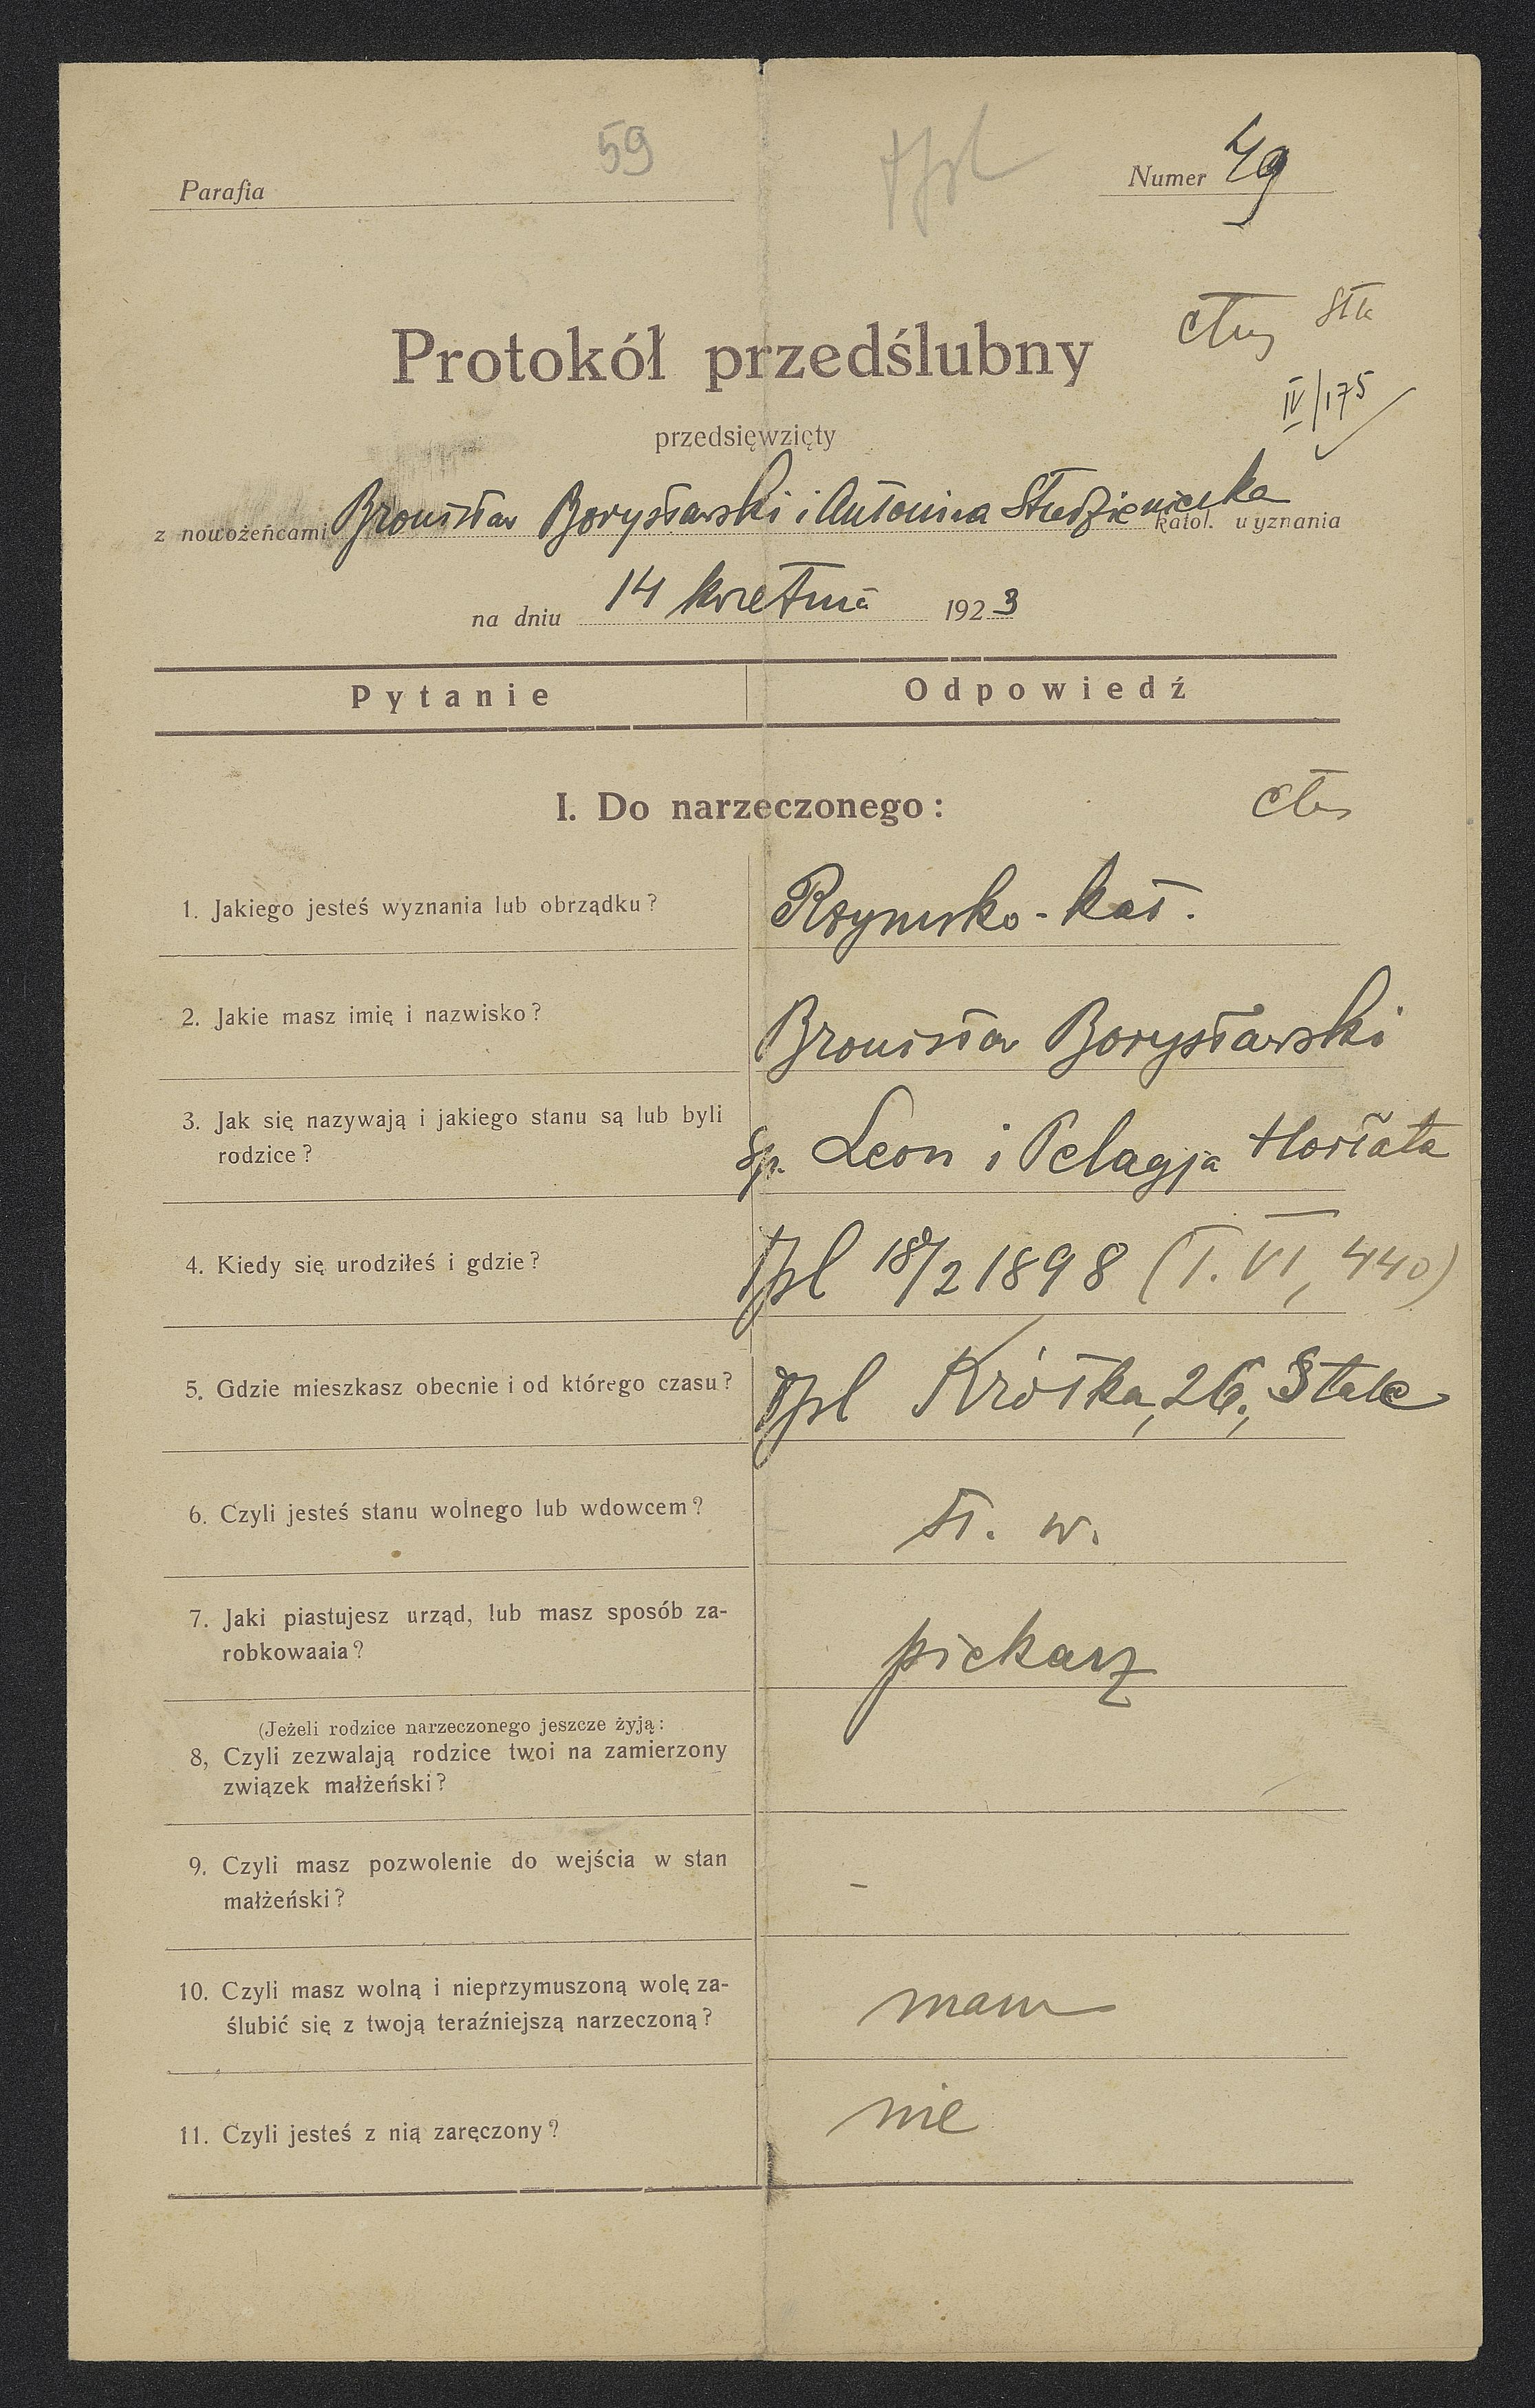 59
Parafia
Numer 49
IV/175
Protokół przedślubny
przedsięwzięty
z nowożeńcami Bronisław Borysławski i Antonina Studzieniecka katol. wyznania
na dniu 14 kwietnia 1923
Pytanie Odpowiedź
I. Do narzeczonego:
1. Jakiego jesteś wyznania lub obrządku? Rzymsko-kat.
2. Jakie masz imię i nazwisko? Bronisław Borysławski
3. Jak się nazywają i jakiego stanu są lub byli
rodzice? śp. Leon i Pelagja
4. Kiedy się urodziłeś i gdzie? Tpl 18/2 1898 (T. VI, 440)
5. Gdzie mieszkasz obecnie i od którego czasu? Tpl Krótka, 26, Stale
6. Czyli jesteś stanu wolnego lub wdowcem? st. w.
7. Jaki piastujesz urząd, lub masz sposób za-
robkowaaia? piekarz
(Jeżeli rodzice narzeczonego jeszcze żyją:
8, Czyli zezwalają rodzice twoi na zamierzony
związek małżeński?
9. Czyli masz pozwolenie do wejścia w stan
małżeński? -
10. Czyli masz wolną i nieprzymuszoną wolę za-
ślubić się z twoją teraźniejszą narzeczoną? mam
11. Czyli jesteś z nią zaręczony? nie